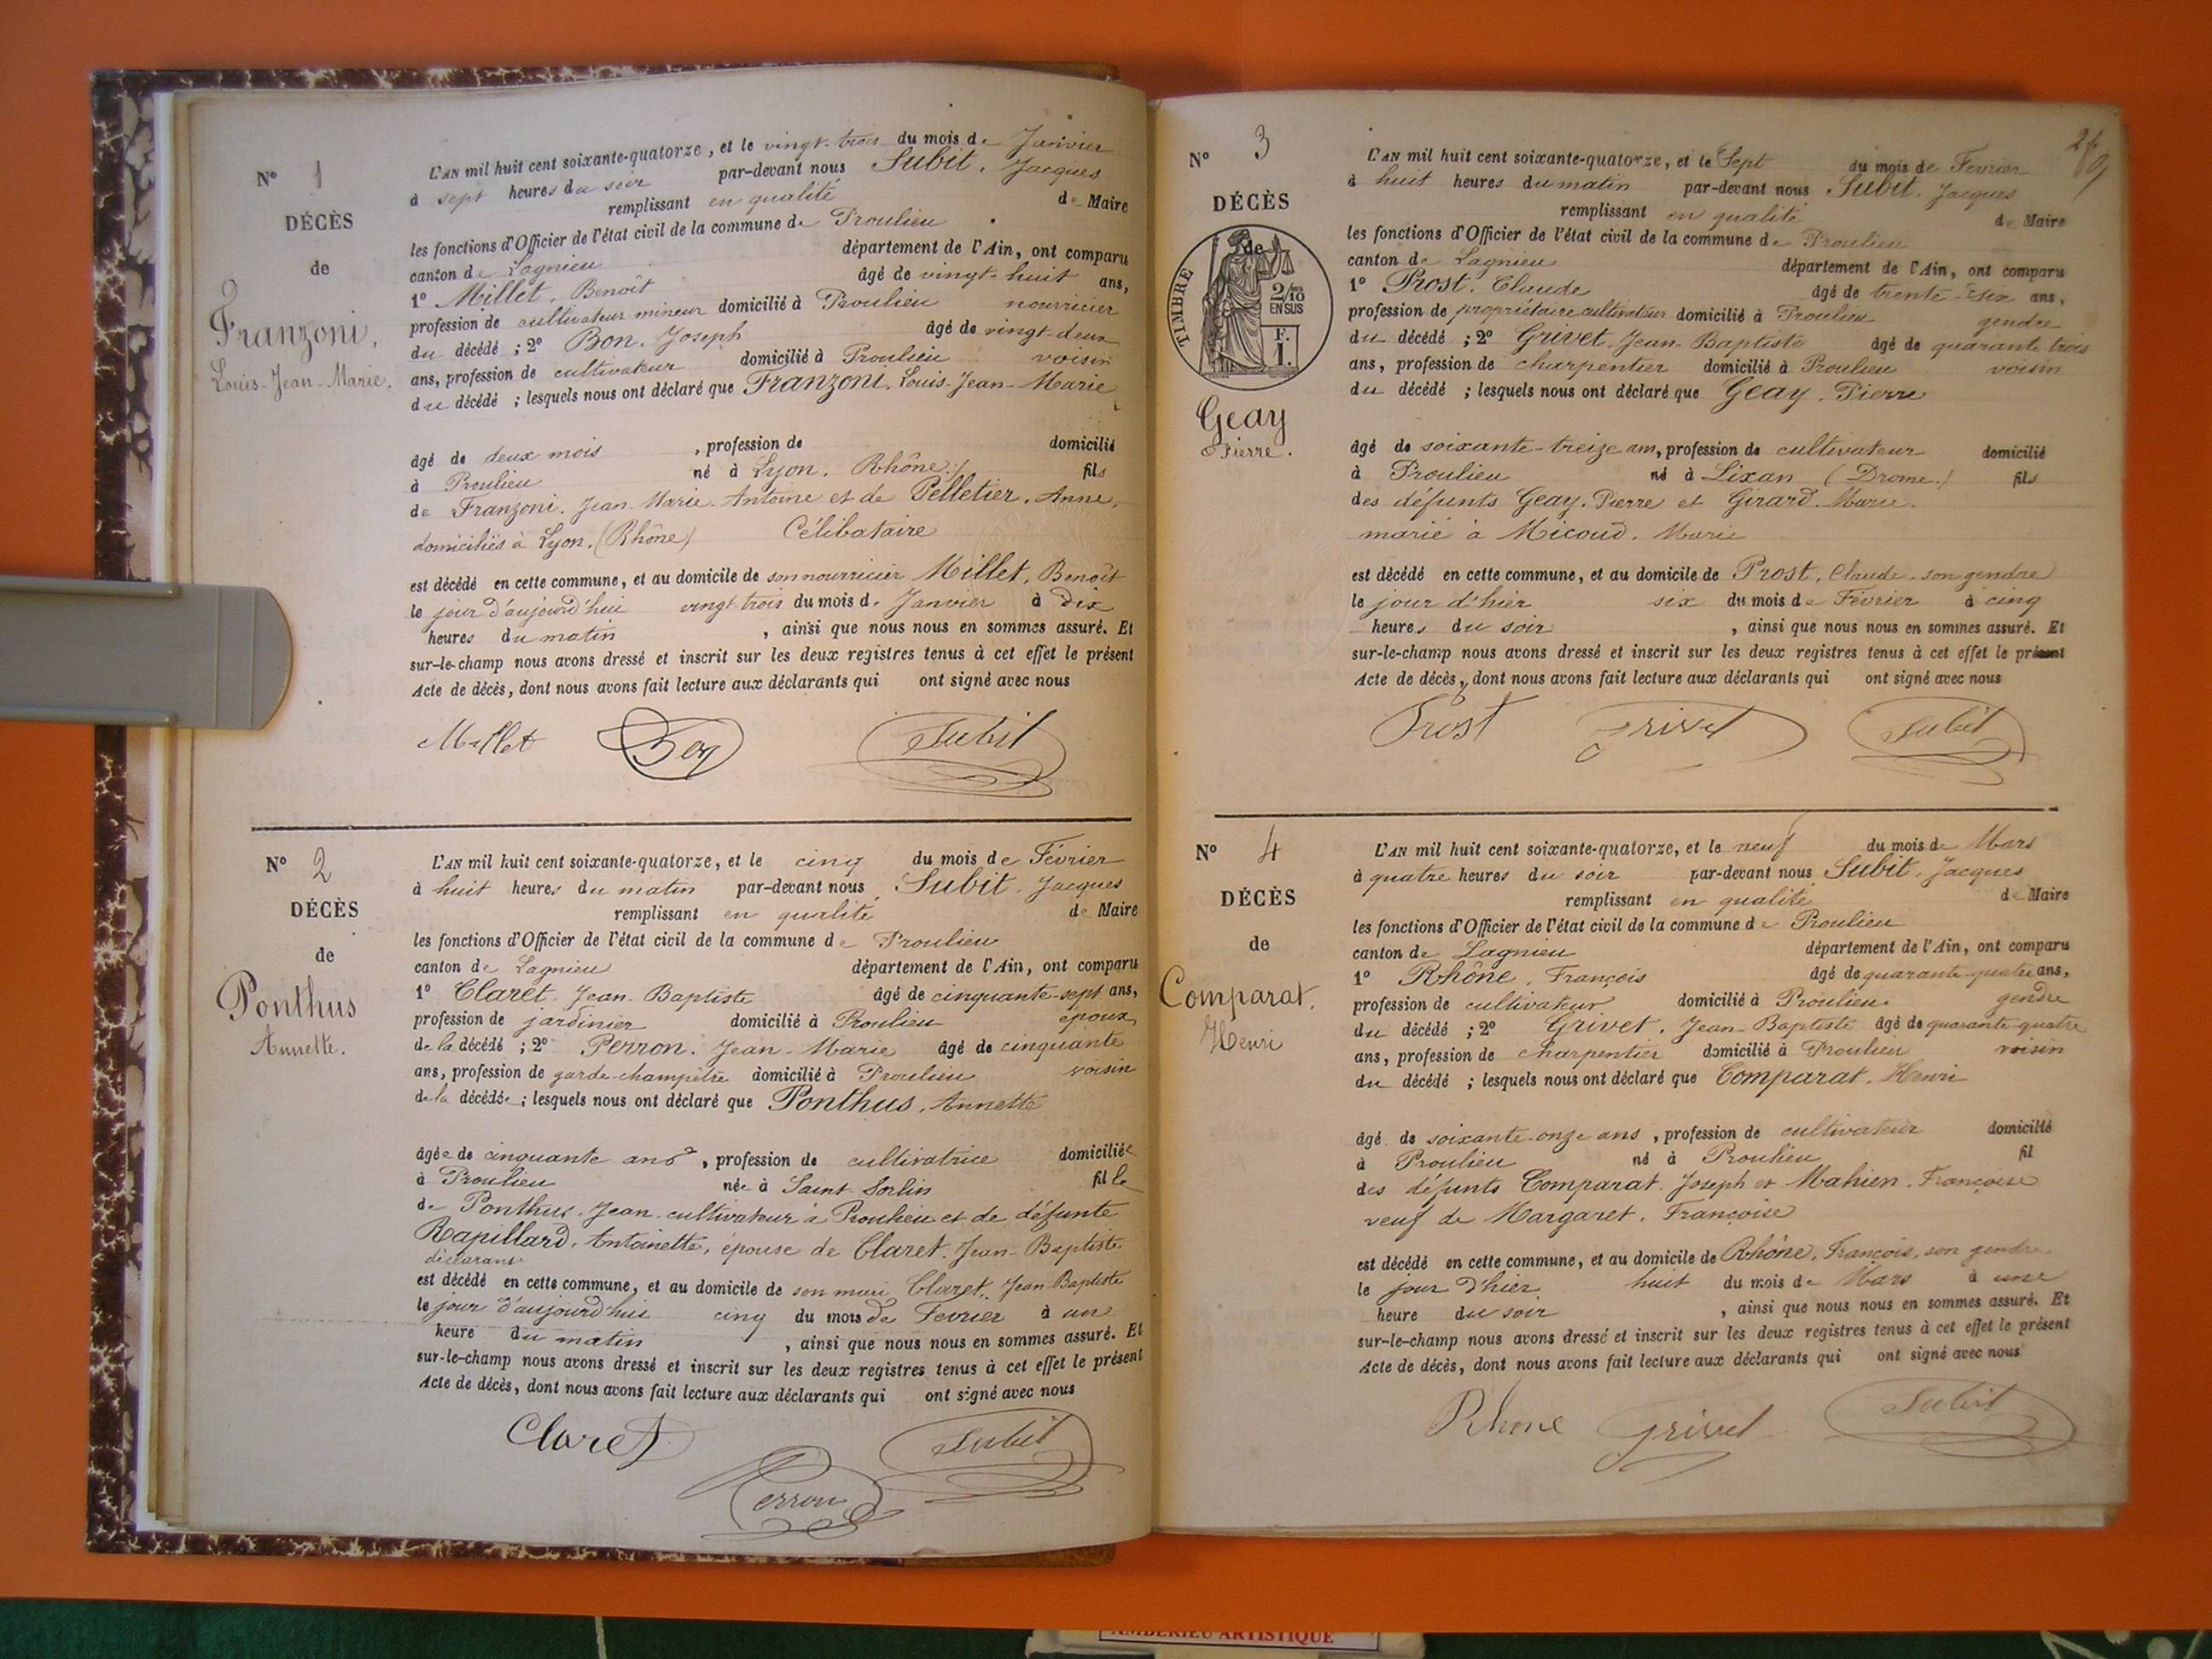 N° 1
DÉCÈS
de
Franzoni,
Louis-Jean-Marie.
L'AN mil huit cent soixante-quatorze, et le vingt-trois du mois de Janvier
à sept heures du soir par-devant nous Subit, Jacques
remplissant en qualité de Maire
les fonctions d'Officier de l'état civil de la commune de Proulieu
canton de Lagnieu département de l'Ain, ont comparu
1° Millet, Benoît âgé de vingt-huit ans,
profession de cultivateur mineur domicilié à Proulieu nourricier
du décédé ; 2° Bon, Joseph âgé de vingt-deux
ans, profession de cultivateur domicilié à Proulieu voisin
du décédé ; lesquels nous ont déclaré que Franzoni, Louis-Jean-Marie
âgé de deux mois , profession de domicilié
à Proulieu né à Lyon, Rhône) fils
de Franzoni, Jean-Marie-Antoine et de Pelletier, Anne,
domiciliés à Lyon, (Rhône) Célibataire
est décédé en cette commune, et au domicile de son nourricier Millet, Benoît
le jour d'aujourd'hui vingt-trois du mois de Janvier à dix
heures du matin , ainsi que nous nous en sommes assuré. Et
sur-le-champ nous avons dressé et inscrit sur les deux registres tenus à cet effet le présent
Acte de décès, dont nous avons fait lecture aux déclarants qui ont signé avec nous
Millet Bon Subit
N° 2
DÉCÈS
de
Ponthus
Annette.
L'AN mil huit cent soixante-quatorze, et le cinq du mois de Février
à huit heures du matin par-devant nous Subit, Jacques
remplissant en qualité de Maire
les fonctions d'Officier de l'état civil de la commune de Proulieu
canton de Lagnieu département de l'Ain, ont comparu
1° Claret, Jean-Baptiste âgé de cinquante-sept ans,
profession de jardinier domicilié à Proulieu époux
de la décédé ; 2° Perron, Jean-Marie âgé de cinquante
ans, profession de garde-champêtre domicilié à Proulieu voisin
de la décédée ; lesquels nous ont déclaré que Ponthus, Annette
âgée de cinquante ans , profession de cultivatrice domiciliée
à Proulieu née à Saint-Sorlin fille
de Ponthus, Jean, cultivateur à Proulieu et de défunte
Rapillard, Antoinette, épouse de Claret, Jean-Baptiste
déclarant
est décédé en cette commune, et au domicile de son mari Claret, Jean-Baptiste
le jour d'aujourd'hui cinq du mois de Février à une
heure du matin , ainsi que nous nous en sommes assuré. Et
sur-le-champ nous avons dressé et inscrit sur les deux registres tenus à cet effet le présent
Acte de décès, dont nous avons fait lecture aux déclarants qui ont signé avec nous
Claret Perron Subit
N° 3
DÉCÈS
de
TIMBRE
2/10
EN SUS
F.
1.
Geay
Pierre.
L'AN mil huit cent soixante-quatorze, et le Sept du mois de Février
à huit heures du matin par-devant nous Subit, Jacques
remplissant en qualité de Maire
les fonctions d'Officier de l'état civil de la commune de Proulieu
canton de Lagnieu département de l'Ain, ont comparu
1° Prost, Claude âgé de trente-six ans,
profession de propriétaire cultivateur domicilié à Proulieu gendre
du décédé ; 2° Grivet, Jean-Baptiste âgé de quarante-trois
ans, profession de charpentier domicilié à Proulieu voisin
du décédé ; lesquels nous ont déclaré que Geay, Pierre
âgé de soixante-treize ans, profession de cultivateur domicilié
à Proulieu né à Lixan (Drome.) fils
des défunts Geay, Pierre et Girard, Marie.
marié à Micoud, Marie
est décédé en cette commune, et au domicile de Prost, Claude, son gendre
le jour d'hier six du mois de Février à cinq
heures du soir , ainsi que nous nous en sommes assuré. Et
sur-le-champ nous avons dressé et inscrit sur les deux registres tenus à cet effet le présent
Acte de décès, dont nous avons fait lecture aux déclarants qui ont signé avec nous
Prost Grivet Subit
N° 4
DÉCÈS
de
Comparat,
Henri
L'AN mil huit cent soixante-quatorze, et le neuf du mois de Mars
à quatre heures du soir par-devant nous Subit, Jacques
remplissant en qualité de Maire
les fonctions d'Officier de l'état civil de la commune de Proulieu
canton de Lagnieu département de l'Ain, ont comparu
1° Rhône, François âgé de quarante-quatre ans,
profession de cultivateur domicilié à Proulieu gendre
du décédé ; 2° Grivet, Jean-Baptiste âgé de quarante-quatre
ans, profession de charpentier domicilié à Proulieu voisin
du décédé ; lesquels nous ont déclaré que Comparat, Henri
âgé de soixante-onze ans , profession de cultivateur domicilié
à Proulieu né à Proulieu fil
des défunts Comparat, Joseph et Mahien, Françoise
veuf de Margaret, Françoise
est décédé en cette commune, et au domicile de Rhône, François, son gendre
le jour d'hier huit du mois de Mars à une
heure du soir , ainsi que nous nous en sommes assuré. Et
sur-le-champ nous avons dressé et inscrit sur les deux registres tenus à cet effet le présent
Acte de décès, dont nous avons fait lecture aux déclarants qui ont signé avec nous
Rhone Grivet Subit
AMBÉRIEU ARTISTIQUE